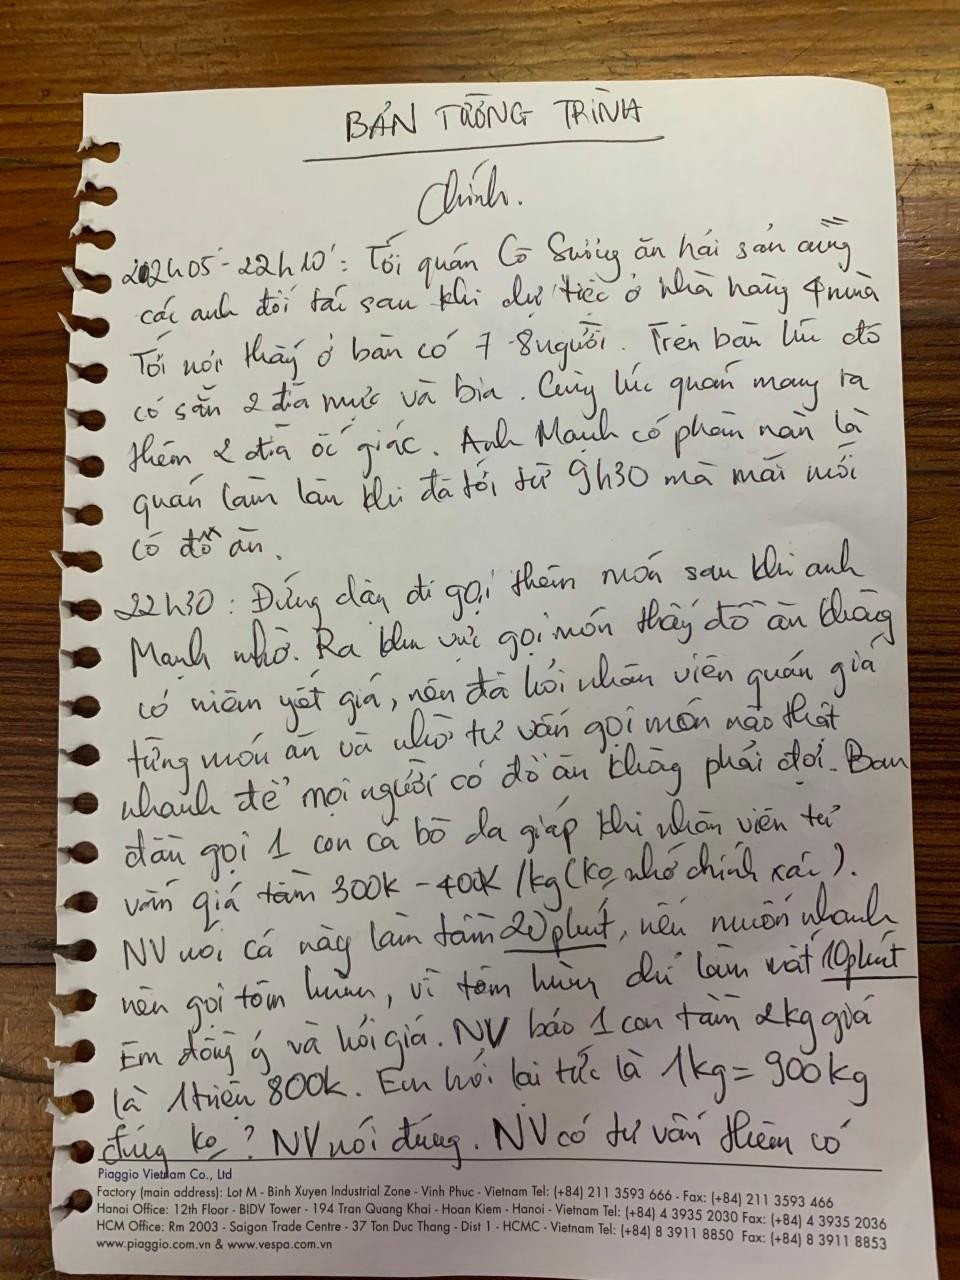 BẢN TƯỜNG TRÌNH
Chính.
22h05 - 22h10: Tới quán Cô Sương ăn hải sản cùng
các anh đối tác sau khi dự tiệc ở nhà hàng 4 mùa
Tới nơi thấy ở bàn có 7-8 người. Trên bàn lúc đó
có sẵn 2 đĩa mực và bia. Cùng lúc quán mang ra
thêm 2 đĩa ốc giác. Anh Mạnh có phàn nàn là
quán làm lâu khi đã tới từ 9h30 mà mãi mới
có đồ ăn.
22h30: Đứng dậy đi gọi thêm món sau khi anh
Mạnh nhờ. Ra khu vực gọi món thấy đồ ăn không
có niêm yết giá, nên đã hỏi nhân viên quán giá
từng món ăn và nhờ tư vấn gọi món nào thật
nhanh để mọi người có đồ ăn không phải đợi. Ban
đầu gọi 1 con cá bò da giáp khi nhân viên tư
vấn giá tầm 300k - 400k /kg (ko nhớ chính xác).
NV nói cá này làm tầm 20 phút, nếu muốn nhanh
nên gọi tôm hùm, vì tôm hùm chỉ làm mất 10 phút
Em đồng ý và hỏi giá. NV báo 1 con tầm 2kg giá
là 1 triệu 800k. Em hỏi lại tức là 1kg = 900kg
đúng ko? NV nói đúng. NV có tư vấn thêm có
Piaggio Vietnam Co., Ltd
Factory (main address): Lot M - Binh Xuyen Industrial Zone - Vinh Phuc - Vietnam Tel: (+84) 211 3593 666 - Fax: (+84) 211 3593 466
Hanoi Office: 12th Floor - BIDV Tower - 194 Tran Quang Khai - Hoan Kiem - Hanoi - Vietnam Tel: (+84) 4 3935 2030 Fax: (+84) 4 3935 2036
HCM Office: Rm 2003 - Saigon Trade Centre - 37 Ton Duc Thang - Dist 1 - HCMC - Vietnam Tel: (+84) 8 3911 8850 Fax: (+84) 8 3911 8853
www.piaggio.com.vn & www.vespa.com.vn